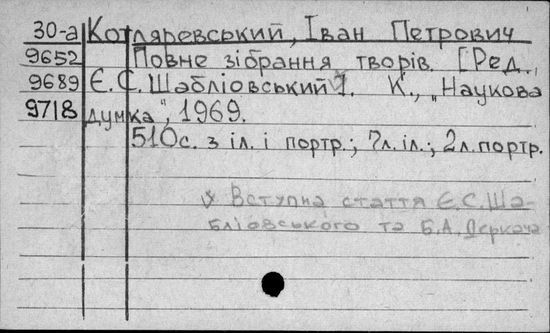 30-а Котляревський, Іван Петрович
9652 Повне зібрання творів. [Ред.,
9689 Є.С. Шабліовський]. К., „Наукова
9718 думка", 1969.
510с. з іл. і портр.; 7л. іл.; 2л. портр.
Вступна стаття Є.С. Ша-
бліовського та Б.А. Деркача